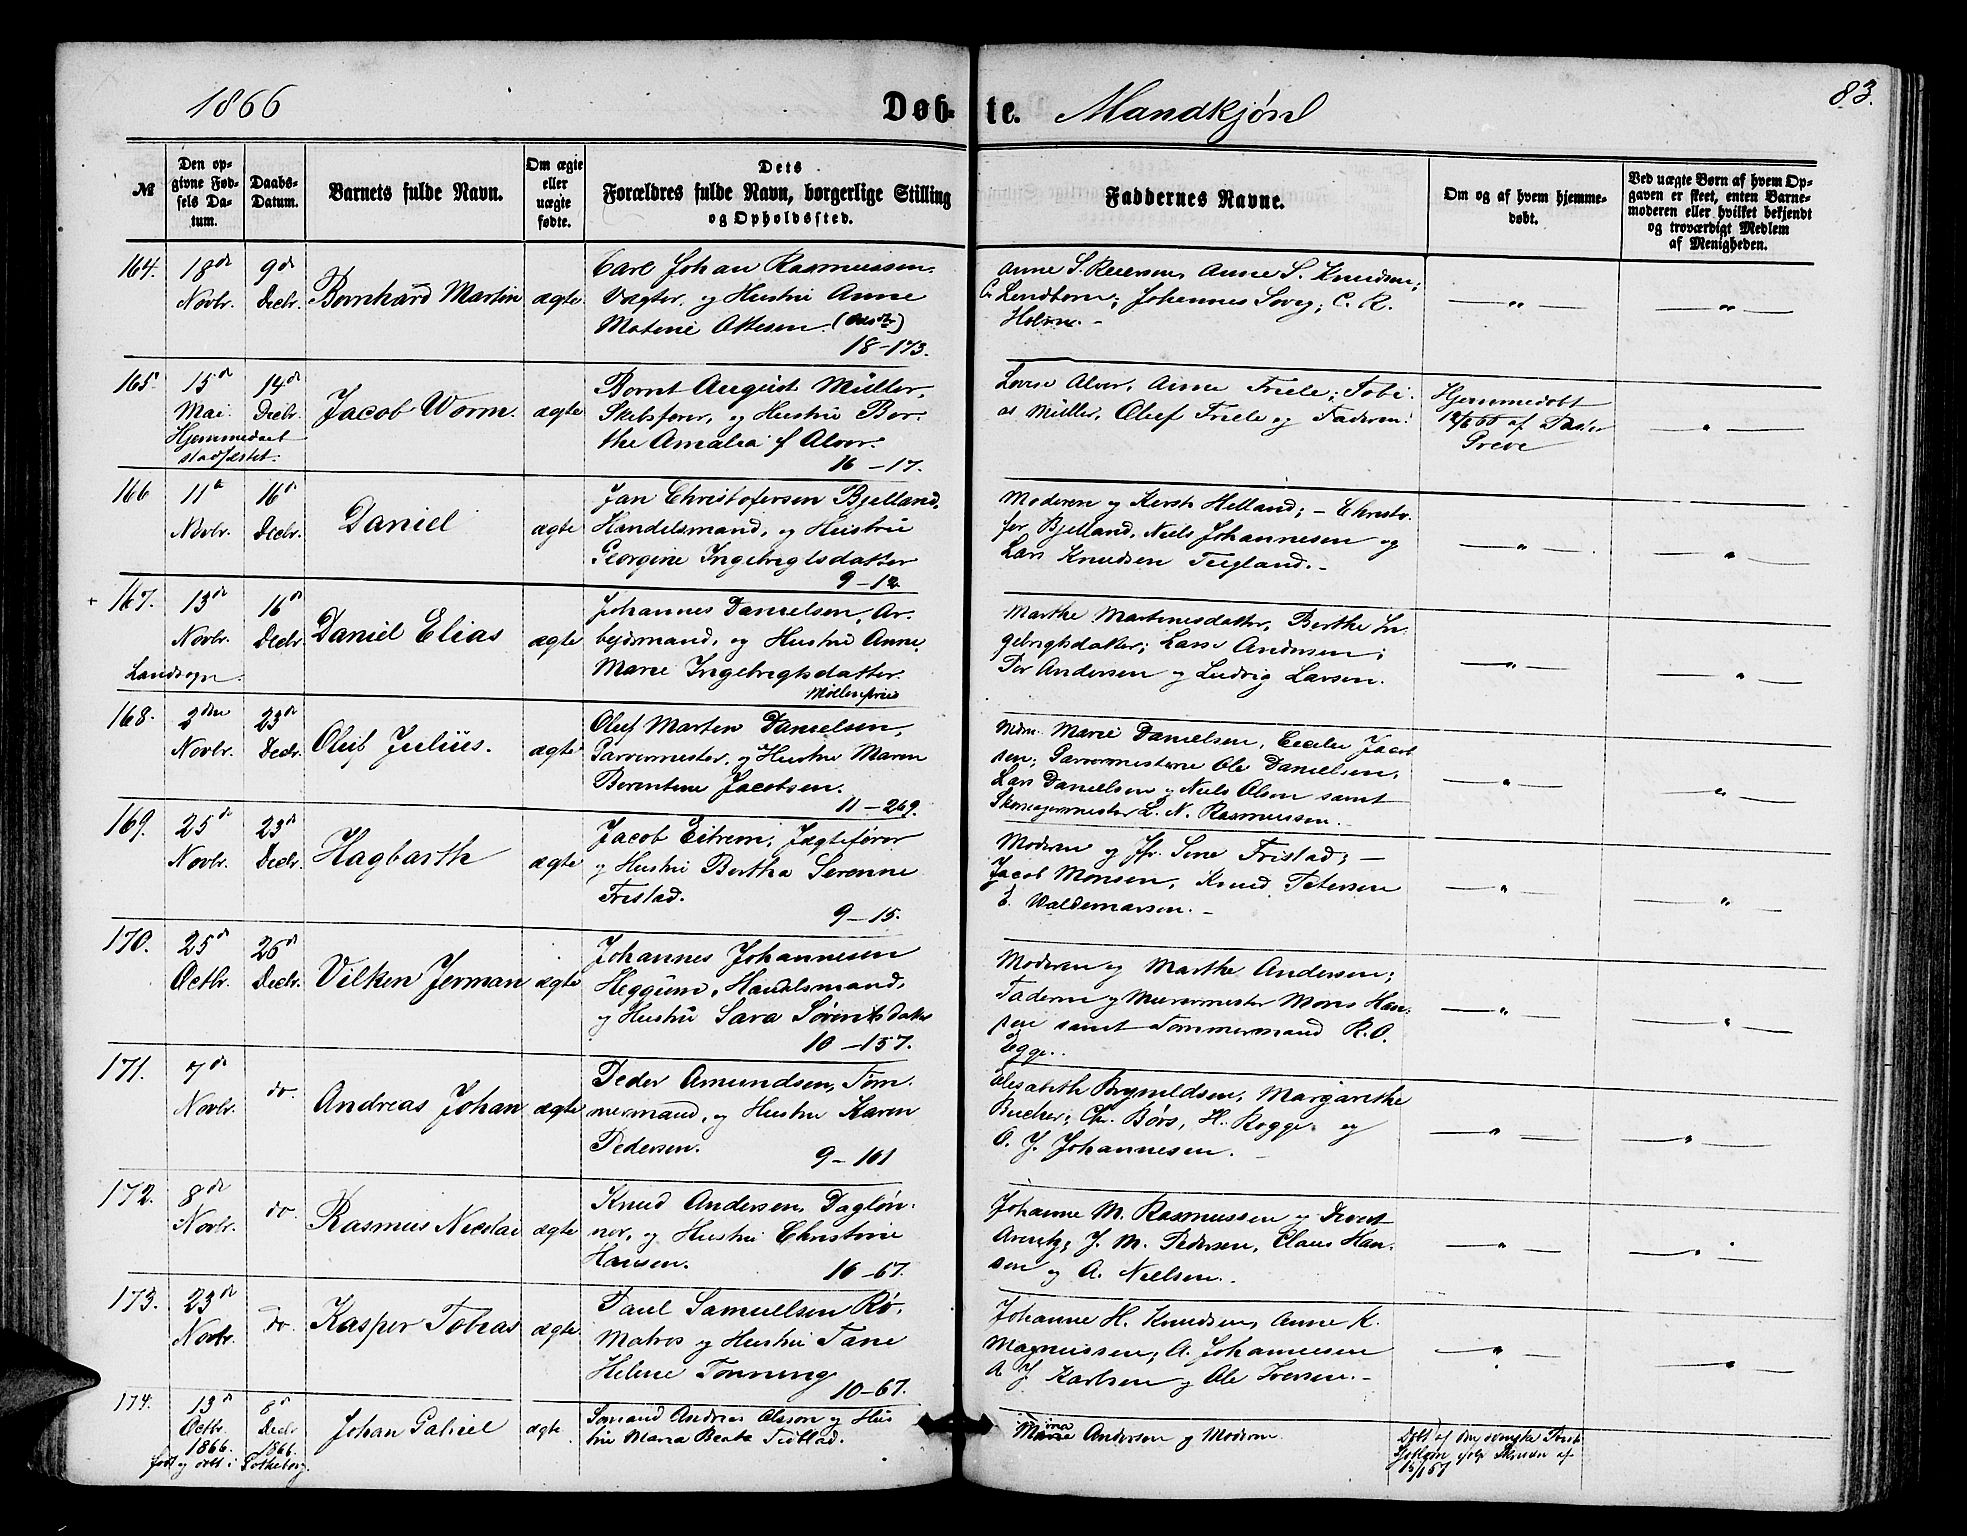 1866
Døb-te. Mandkjøn
83.
№
Den opgivne Fødsels Datum.
Daabs-Datum.
Barnets fulde Navn.
Om ægte eller uægte fødte.
Dets Forældres fulde Navn, borgerlige Stilling og Opholdssted.
Faddernes Navne.
Om og af hvem hjemmedøbt.
Ved uægte Børn af hvem Opgaven er skeet, enten Barnemoderen eller hvilket bekjendt og troværdigt Medlem af Menigheden.
164. 18de Novbr. 9de Decbr. Bernhard Martin ægte
Carl Johan Rasmussen,
Vægter, og Hustru Anne
Matine Ottesen.
18-173.
Anne S. Reiersen, Anne S. Knudsen;
C. Lendborn; Johannes Soveg; C. R.
Holm.-
165. 15de Mai. 14de Decbr. Jacob Worm. ægte
Hjemmedaab
stadfæstet.
Bernt August Müller,
Skibsfører, og Hustru Ber-
the Amalia f Alver.
16-17.
Lovise Alver, Anne Friele; Tobi-
as Müller, Oluf Friele og Faderen.
Hjemmedøbt
af
Greve
166 11te Novbr. 16de Decbr. Daniel ægte
Jan Christofersen Bjelland,
Handelsmand, og Hustru
Georgine Ingebrigtsdatter
9-12.
Moderen og Kersti Helland; - Christo-
fer Bjelland, Niels Johannesen og
Lars Knudsen Tegland.-
167. 13de Novbr. 16de Decbr. Daniel Elias ægte
Landsogn.
Johannes Danielsen, Ar-
bejdsmand, og Hustru Anne
Marie Ingebrigtsdatter.
Marthe Martinesdatter, Berthe In-
gebrigtsdatter; Lars Andersen;
Per Andersen og Ludvig Larsen.
168. 2den Novbr. 23de Decbr. Oluf Julius. ægte
Oluf Martin Danielsen,
Garvermester, og Hustru Maren
Berentine Jacobsen.
11-269.
Mdm. Marie Danielsen, Cecilie Jacob
sen; Garvermesterne Ole Danielsen,
Lars Danielsen og Niels Olsen samt
Skomagermester L. N. Rasmussen.
169. 25de Novbr. 23de Decbr. Hagbarth ægte
Jacob Eitrem, Jægtefører
og Hustru Bertha Serenne
Tristad.
9-15.
Moderen og Jfr. Sine Tristad; -
Jacob Monsen, Knud Petersen
E. Waldemarsen.-
170. 25de Octbr. 26de Decbr. Vilken Jerman ægte
Johannes Johannesen
Heggum, Handelsmand,
og Hustru Sara Sørentsdatter
10-157.
Moderen og Marthe Andersen;
Faderen og Murermester Mons Han-
sen samt Tømmermand R. O.
Egge.
171. 7de Novbr. do. Andreas Johan ægte
Peder Amundsen, Tøm-
mermand, og Hustru Karen
Pedersen.
9-101
Elisabeth Brynildsen, Margarethe
Bucher; Chr. Børs, H. Rogge og
O. J. Johannesen.
172. 8de Novbr. do. Rasmus Nicolai ægte
Knud Andersen, Dagløn-
ner, og Hustru Christine
Hansen.
10-67.
Johanne M. Rasmussen og Sivert
Arentz, J. M. Pedersen, Claus Han-
sen og A. Nielsen.
173. 23de Novbr. do. Kasper Tobias ægte
Paul Samuelsen Rø,
Matros og Hustru Tane
Helene Tønning
10-67.
Johanne H. Knudsen, Anne K.
Magnussen; A. Johannesen
A J Karlsen og Ole Iversen.-
174. 13de Octbr. 1866. 8de Decbr 1866. Johan Gabriel ægte
født og døbt i Gotheborg.
Sømand Andreas Olsson og Hus
tru Maria Beata Tidblad.
Mina Andersen og Moderen
Døbt af den svenske Præst